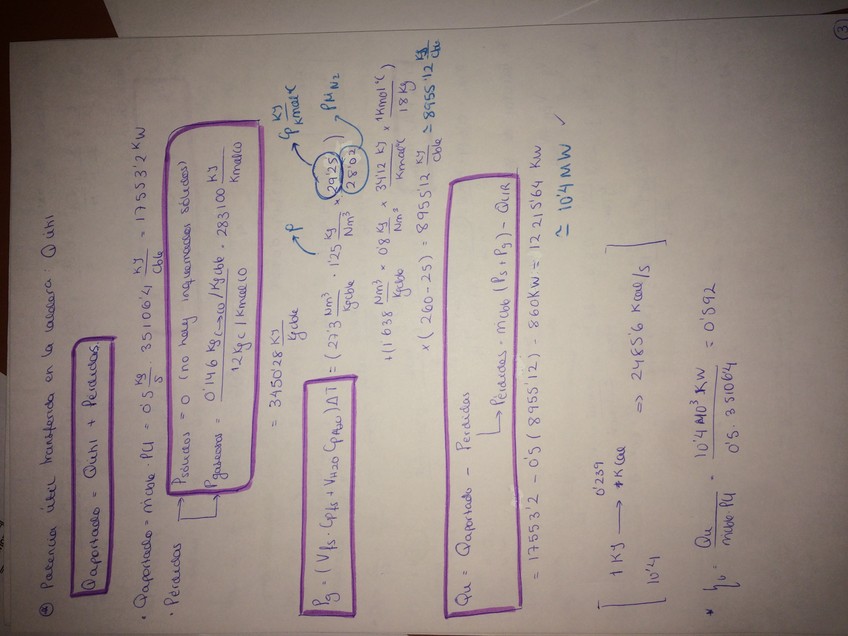 ③
④ Potencia útil transferida en la caldera: Qútil
Qaportado = Qútil + Perdidas.
• Qaportado = ṁcbb · PCI = 0'5 Kg/s · 35106'4 KJ/Cble = 17553'2 KW
• Pérdidas → Psólidos = 0 (no hay inquemados sólidos)
→ Pgaseosos = 0'146 Kg C→CO / Kg cble / 12 Kg C / Kmol CO · 283100 KJ / Kmol CO
= 3450'28 KJ / Kg cble
→ P
→ Cp KJ / Kmol°C
Pg = (Vfs · Cpfs + VH2O CpH2O) ΔT = (27'3 Nm³/Kg cble · 1'25 Kg/Nm³ × 29'25/28'02)
→ PM N2
+ (1'638 Nm³/Kg cble × 0'8 Kg/Nm³ × 34'12 KJ/Kmol°C × 1Kmol°C/18 Kg)
× (260 - 25) = 8955'12 KJ/cble ≃ 8955'12 KJ/cble
Qu = Qaportado - Perdidas
→ Pérdidas = ṁcbb (Ps + Pg) - QUIR
= 17553'2 - 0'5 (8955'12) - 860KW = 12215'64 KW
≃ 10'4 MW ✓
[ 1 KJ → 0'239 Kcal
10'4 ⇒ 2485'6 Kcal/s ]
* ηb = Qu / ṁcbb·PCI = 10'4·10³ KW / 0'5 · 35106'4 = 0'592